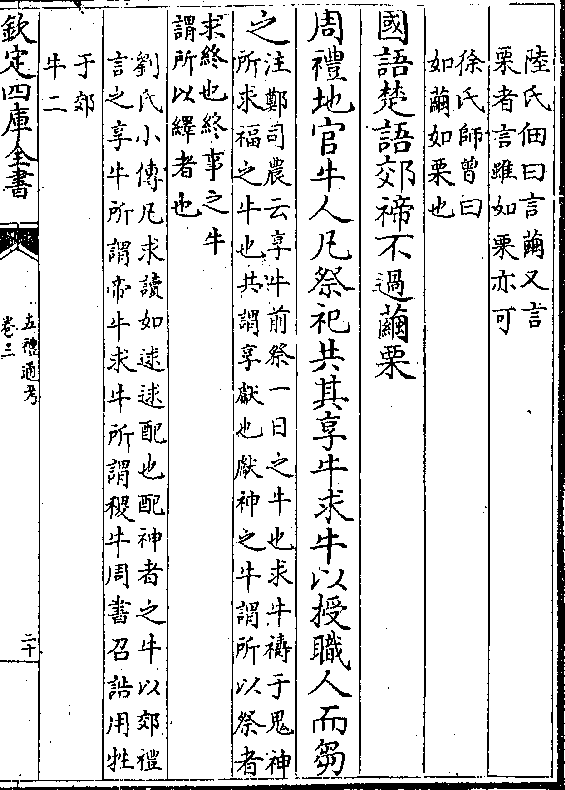 陸氏佃曰言繭又言
栗者言雖如栗亦可
徐氏師曾曰
如繭如栗也
國語楚語郊禘不過繭栗
周禮地官牛人凡祭祀共其享牛求牛以授職人而芻
之
注鄭司農云享牛前祭一日之牛也求牛禱于鬼神
所求福之牛也共謂享獻也獻神之牛謂所以祭者
求終也終事之牛
謂所以繹者也
劉氏小傳凡求讀如逑逑配也配神者之牛以郊禮
言之享牛所謂帝牛求牛所謂稷牛周書召誥用牲
于郊
牛二
欽定四庫全書
五禮通考
卷三
二十